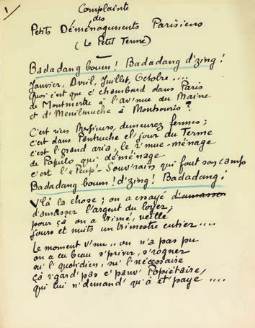 1
Complainte
des
Petits Déménagements Parisiens
(Le Petit Terme)
Badadang boum ! Badadang d'zing !
Janvier, Avril, Juillet, Octobre ....
Quoi c'est que c' chambard dans Paris
de Montmertre à l'av'nue du Maine
et d' Ménilmuche à Montsouris ?
C'est rien Messieurs, demeurez fermes ;
c'est dans Pantruche el jour du Terme
c'est l' grand aria, le r'mue-ménage
de Populo qui déménage
c'est l' Peup' Souv'rain qui fout son camp
Badadang boum ! d'zing ! Badadang !
V'là la chose ; on a essayé
d'amasser l'argent du loyer ;
pour ça on a trimé, veillé
jours et nuits un trimestre entier ....
Le moment v'nu .. on n'a pas pu
on a eu beau s' priver, s' rogner
su' l' quotidien, su' l' nécessaire
ça r'gard' pas c' pauv' Popiétaire
qui lui n' demand' qu'à êt' payé ....